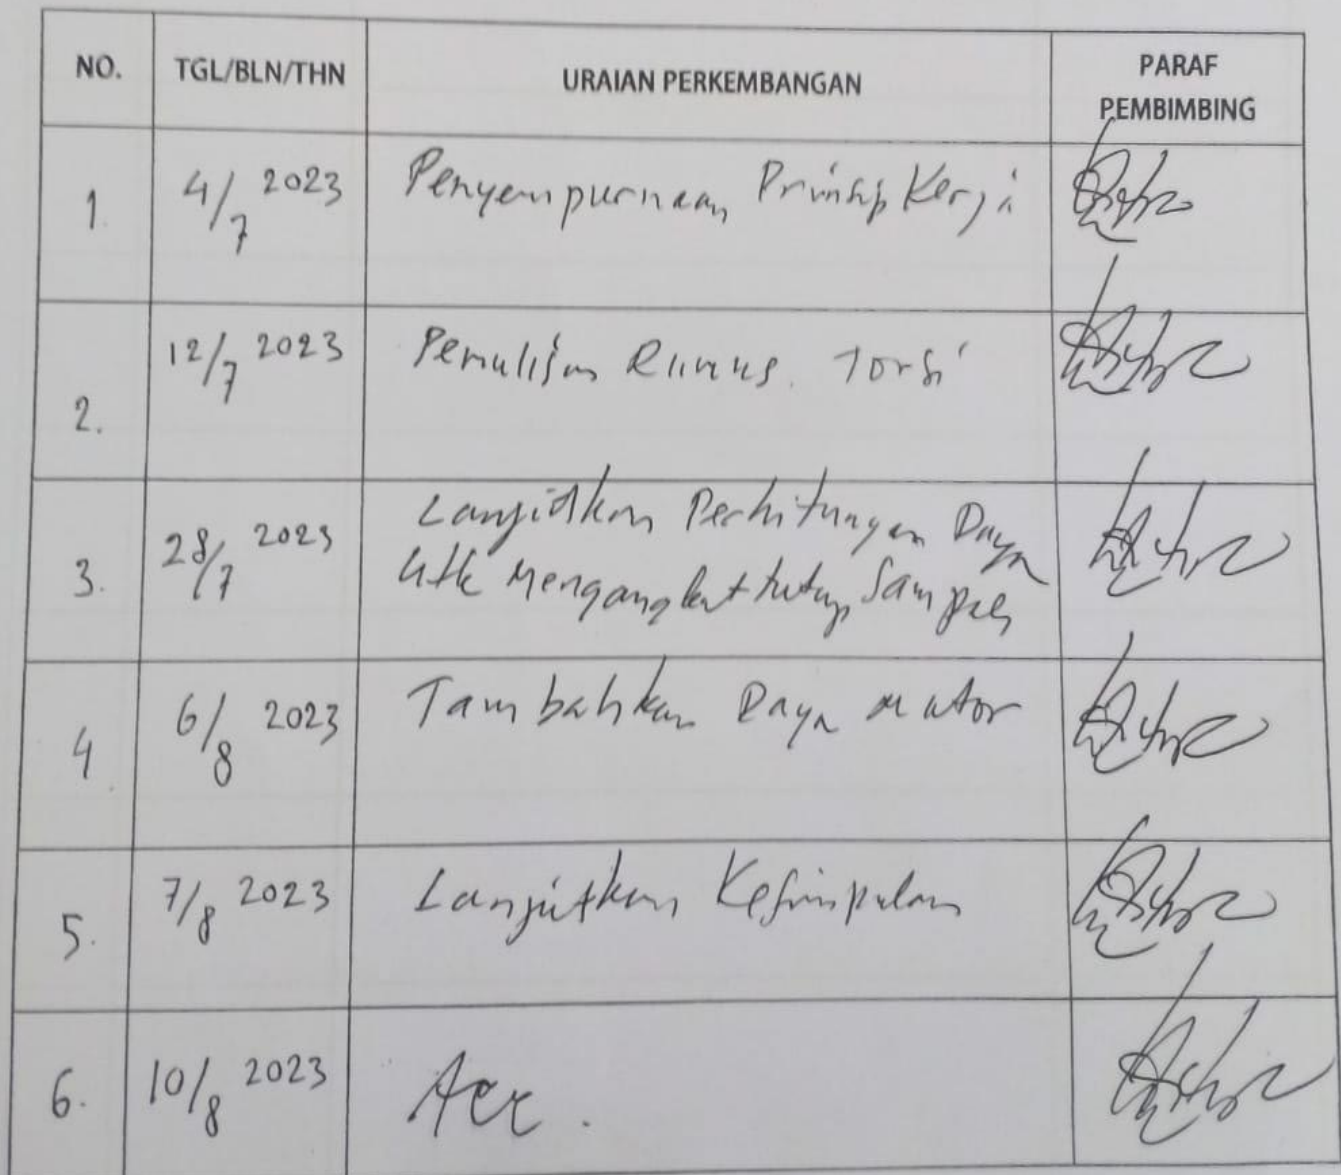 NO. TGL/BLN/THN URAIAN PERKEMBANGAN PARAF
PEMBIMBING
1. 4/7 2023 Penyempurnaan Prinsip Kerja
2. 12/7 2023 Penulisan Rumus. Torsi
3. 28/7 2023 Lanjutkan Perhitungan Daya
utk Mengangkat tutup Sampah
4 6/8 2023 Tambahkan Daya Motor
5. 7/8 2023 Lanjutkan Kesimpulan
6. 10/8 2023 Acc.